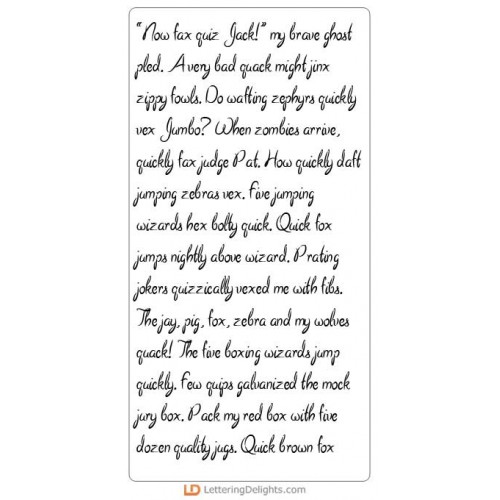 "Now fax quiz Jack!" my brave ghost
pled. A very bad quack might jinx
zippy fowls. Do wafting zephyrs quickly
vex Jumbo? When zombies arrive,
quickly fax judge Pat. How quickly daft
jumping zebras vex. Five jumping
wizards hex bolty quick. Quick fox
jumps nightly above wizard. Prating
jokers quizzically vexed me with fibs.
The jay, pig, fox, zebra and my wolves
quack! The five boxing wizards jump
quickly. Few quips galvanized the mock
jury box. Pack my red box with five
dozen quality jugs. Quick brown fox
LD LetteringDelights.com